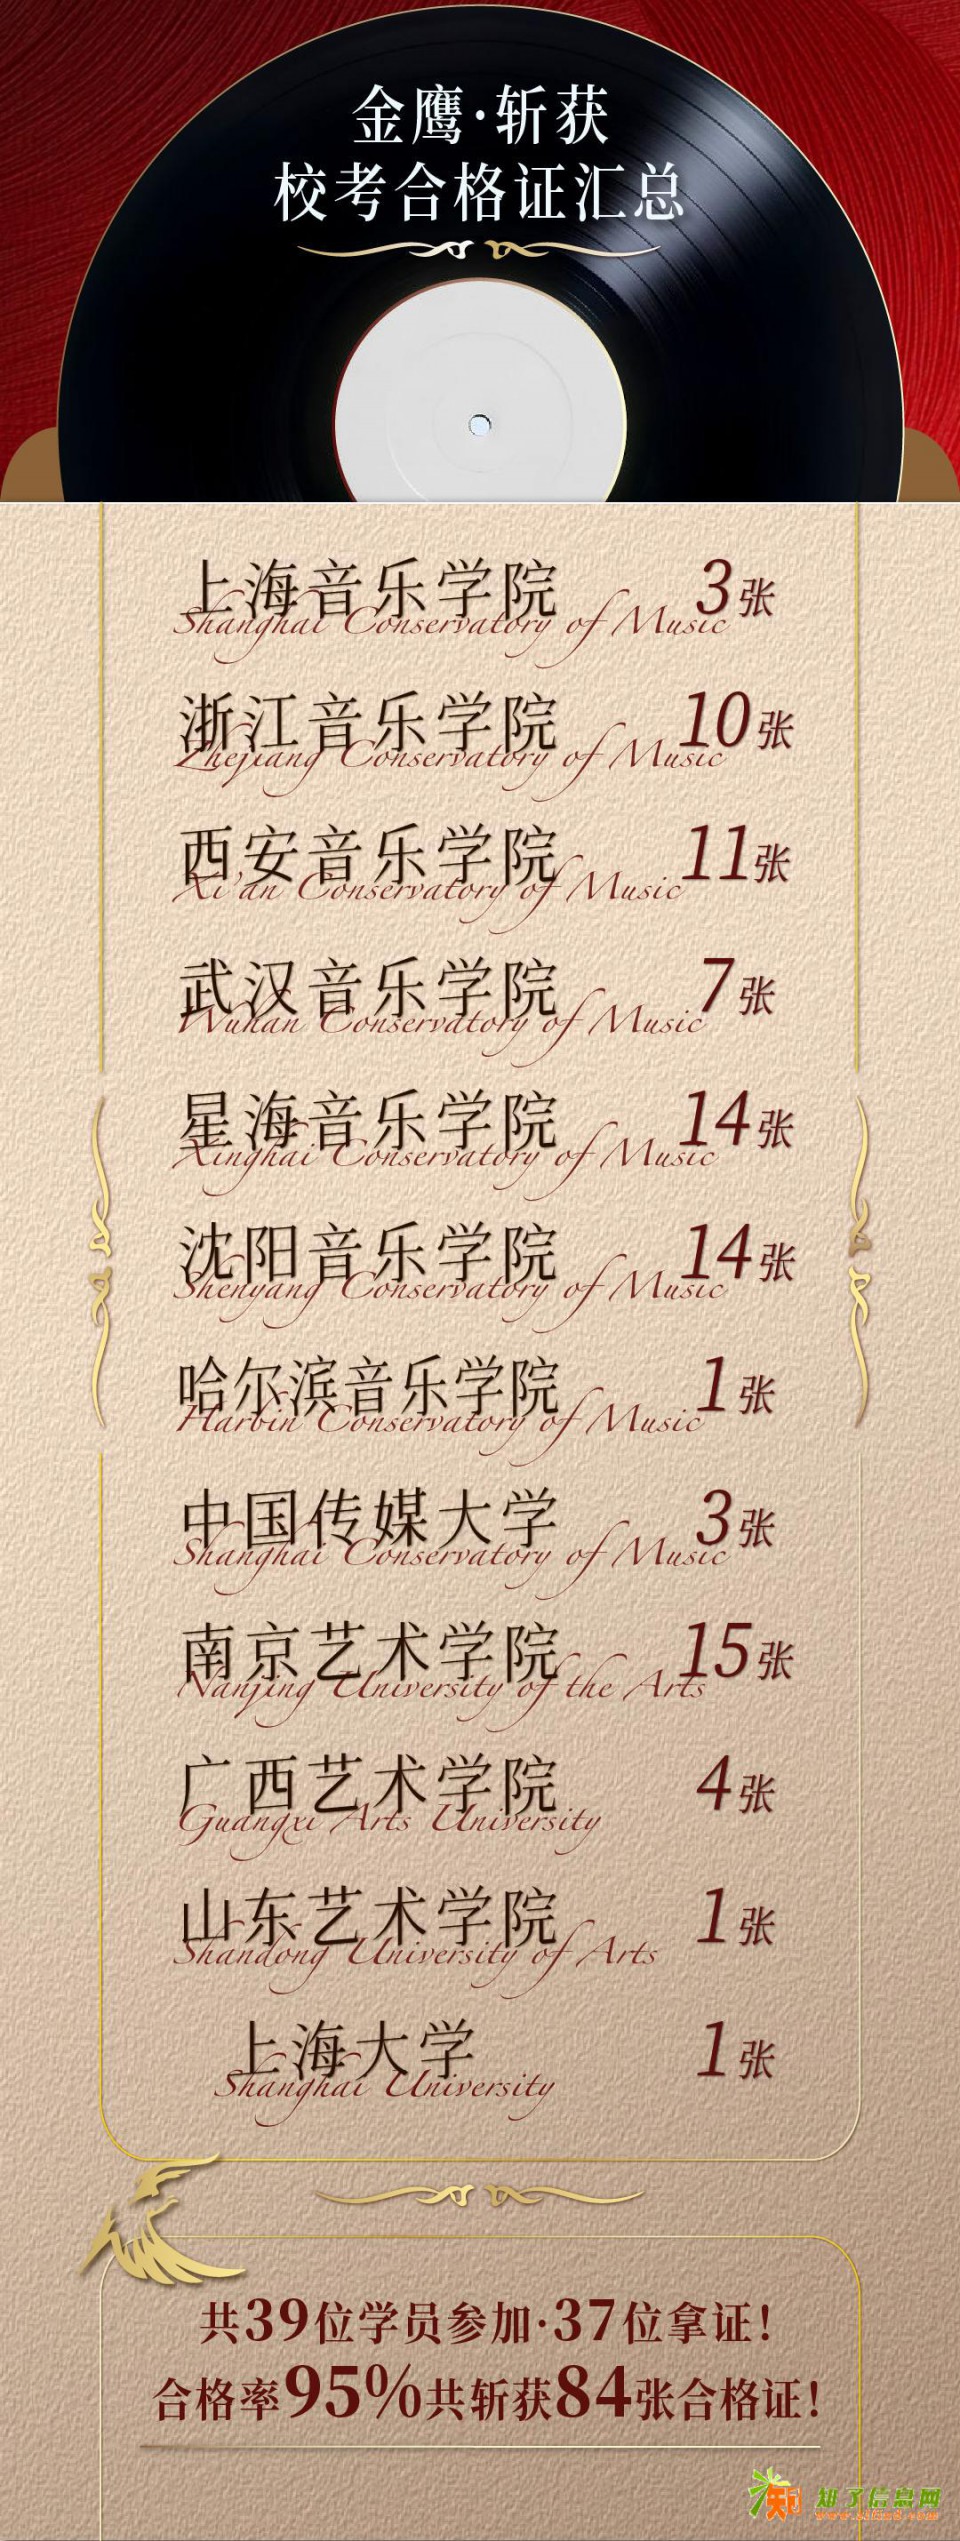 金鹰·斩获
校考合格证汇总
上海音乐学院 3张
Shanghai Conservatory of Music
浙江音乐学院 10张
Zhejiang Conservatory of Music
西安音乐学院 11张
Xi'an Conservatory of Music
武汉音乐学院 7张
Wuhan Conservatory of Music
星海音乐学院 14张
Xinghai Conservatory of Music
沈阳音乐学院 14张
Shenyang Conservatory of Music
哈尔滨音乐学院 1张
Harbin Conservatory of Music
中国传媒大学 3张
Shanghai Conservatory of Music
南京艺术学院 15张
Nanjing University of the Arts
广西艺术学院 4张
Guangxi Arts University
山东艺术学院 1张
Shandong University of Arts
上海大学 1张
Shanghai University
共39位学员参加·37位拿证！
合格率95%共斩获84张合格证！
知了信息网